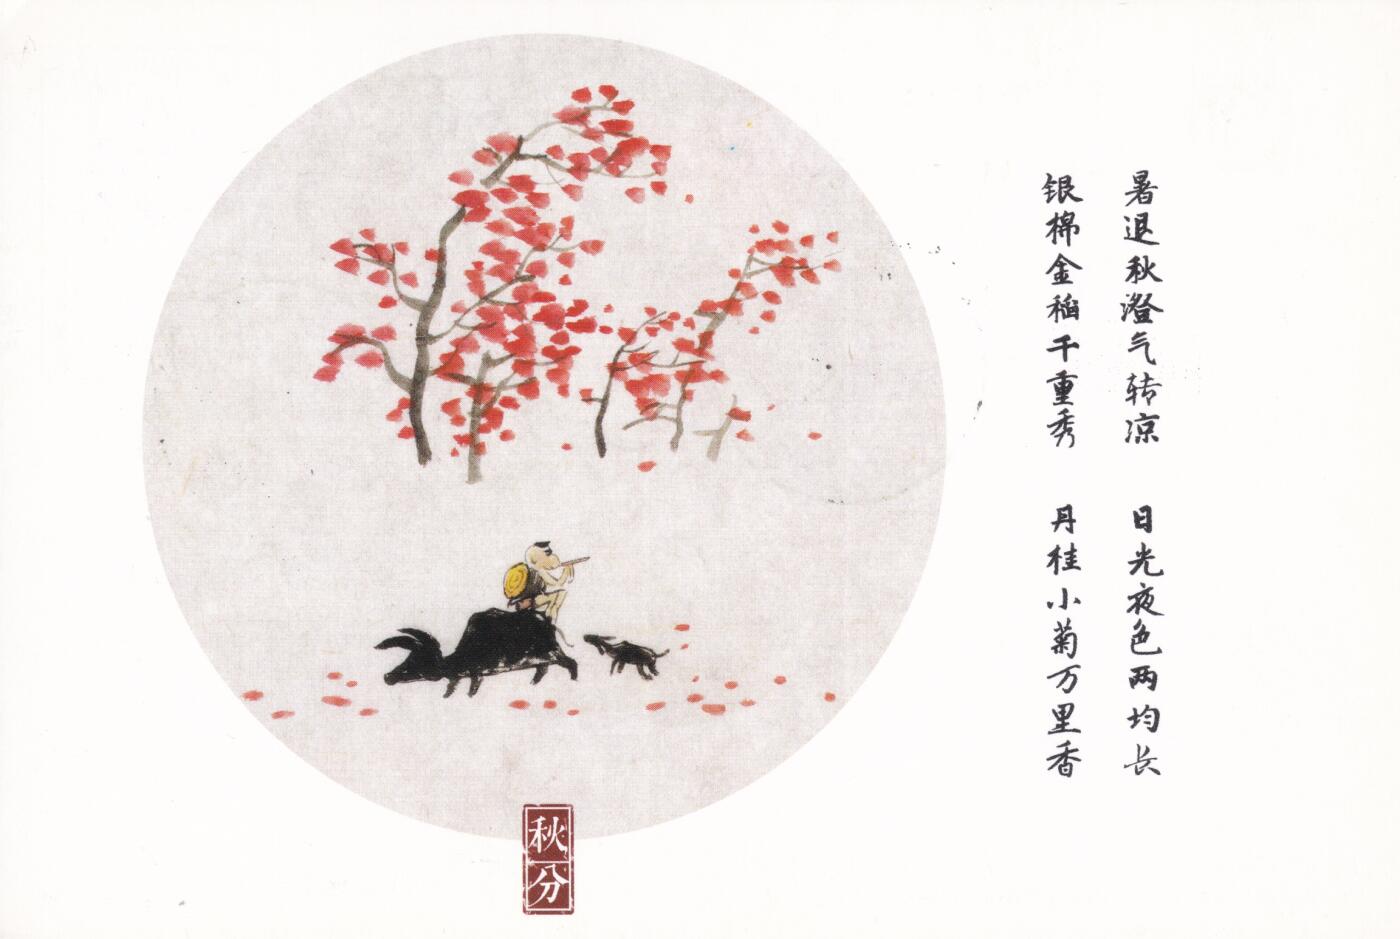 暑退秋澄气转凉 日光夜色两均长
银棉金稻千重秀 丹桂小菊万里香
秋分